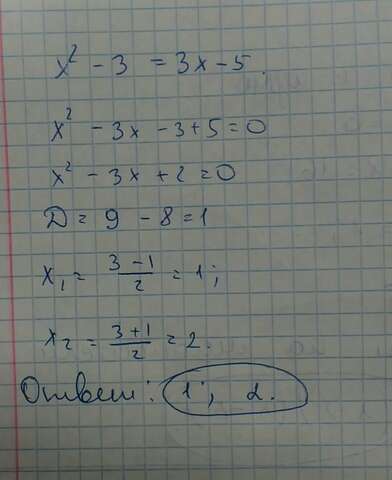 x² - 3 = 3x - 5.
x² - 3x - 3 + 5 = 0
x² - 3x + 2 = 0
D = 9 - 8 = 1
x₁ = (3 - 1)/2 = 1;
x₂ = (3 + 1)/2 = 2.
Ответ: 1; 2.